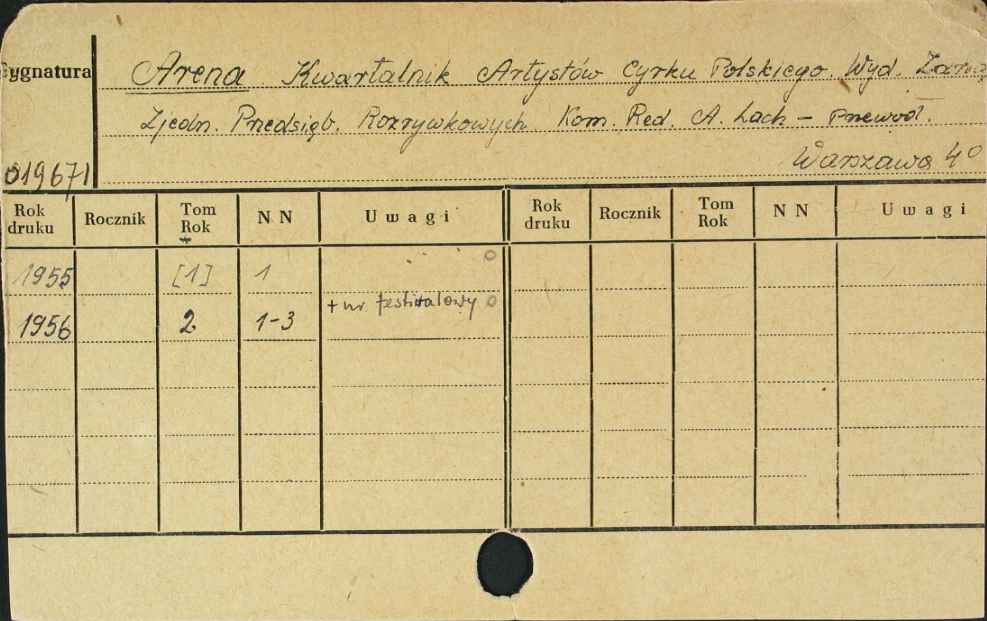 Sygnatura
Arena Kwartalnik Artystów Cyrku Polskiego. Wyd. Zarz.
Zjedn. Przedsięb. Rozrywkowych. Kom. Red. A. Lach – przewod.
Warszawa 4°
019671
Rok druku Rocznik Tom Rok NN Uwagi Rok druku Rocznik Tom Rok NN Uwagi
1955 [1] 1
1956 2 1-3 + nr festiwalowy